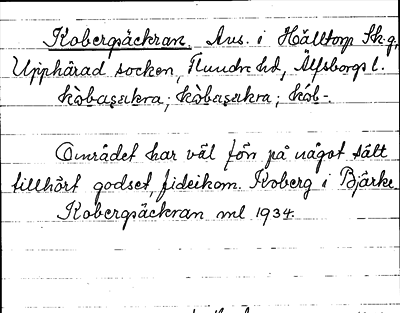 Kobergsäckran. Avs. i Hälltorp Sk.g,
Upphärad socken, Flundre hd, Älfsborgs l.
kòbasækra; kòbaʂækra; kób-.
Området har väl förr på något sätt
tillhört godset, fideikom. Koberg i Bjärke.
Kobergsäckran ml 1934.